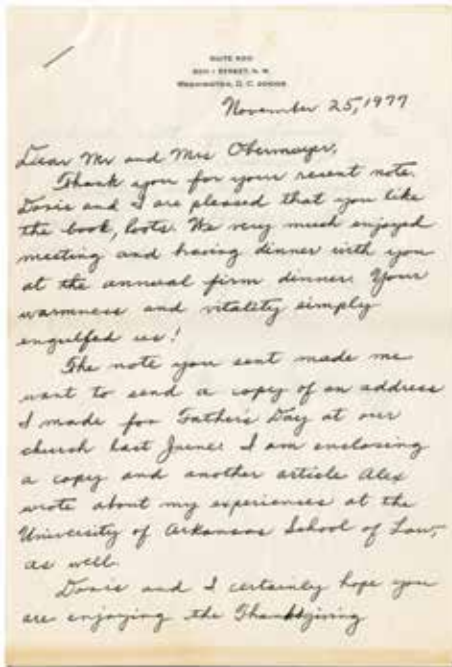 SUITE
STREET, N. W.
WASHINGTON, D. C.
November 25, 1977
Dear Mr and Mrs Obermayer,
Thank you for your recent note.
Doris and I are pleased that you like
the book, Roots. We very much enjoyed
meeting and having dinner with you
at the annual firm dinner. Your
warmness and vitality simply
engulfed us!
The note you sent made me
want to send a copy of an address
I made for Father's Day at our
church last June. I am enclosing
a copy and another article Alex
wrote about my experiences at the
University of Arkansas School of Law,
as well.
Doris and I certainly hope you
are enjoying the Thanksgiving